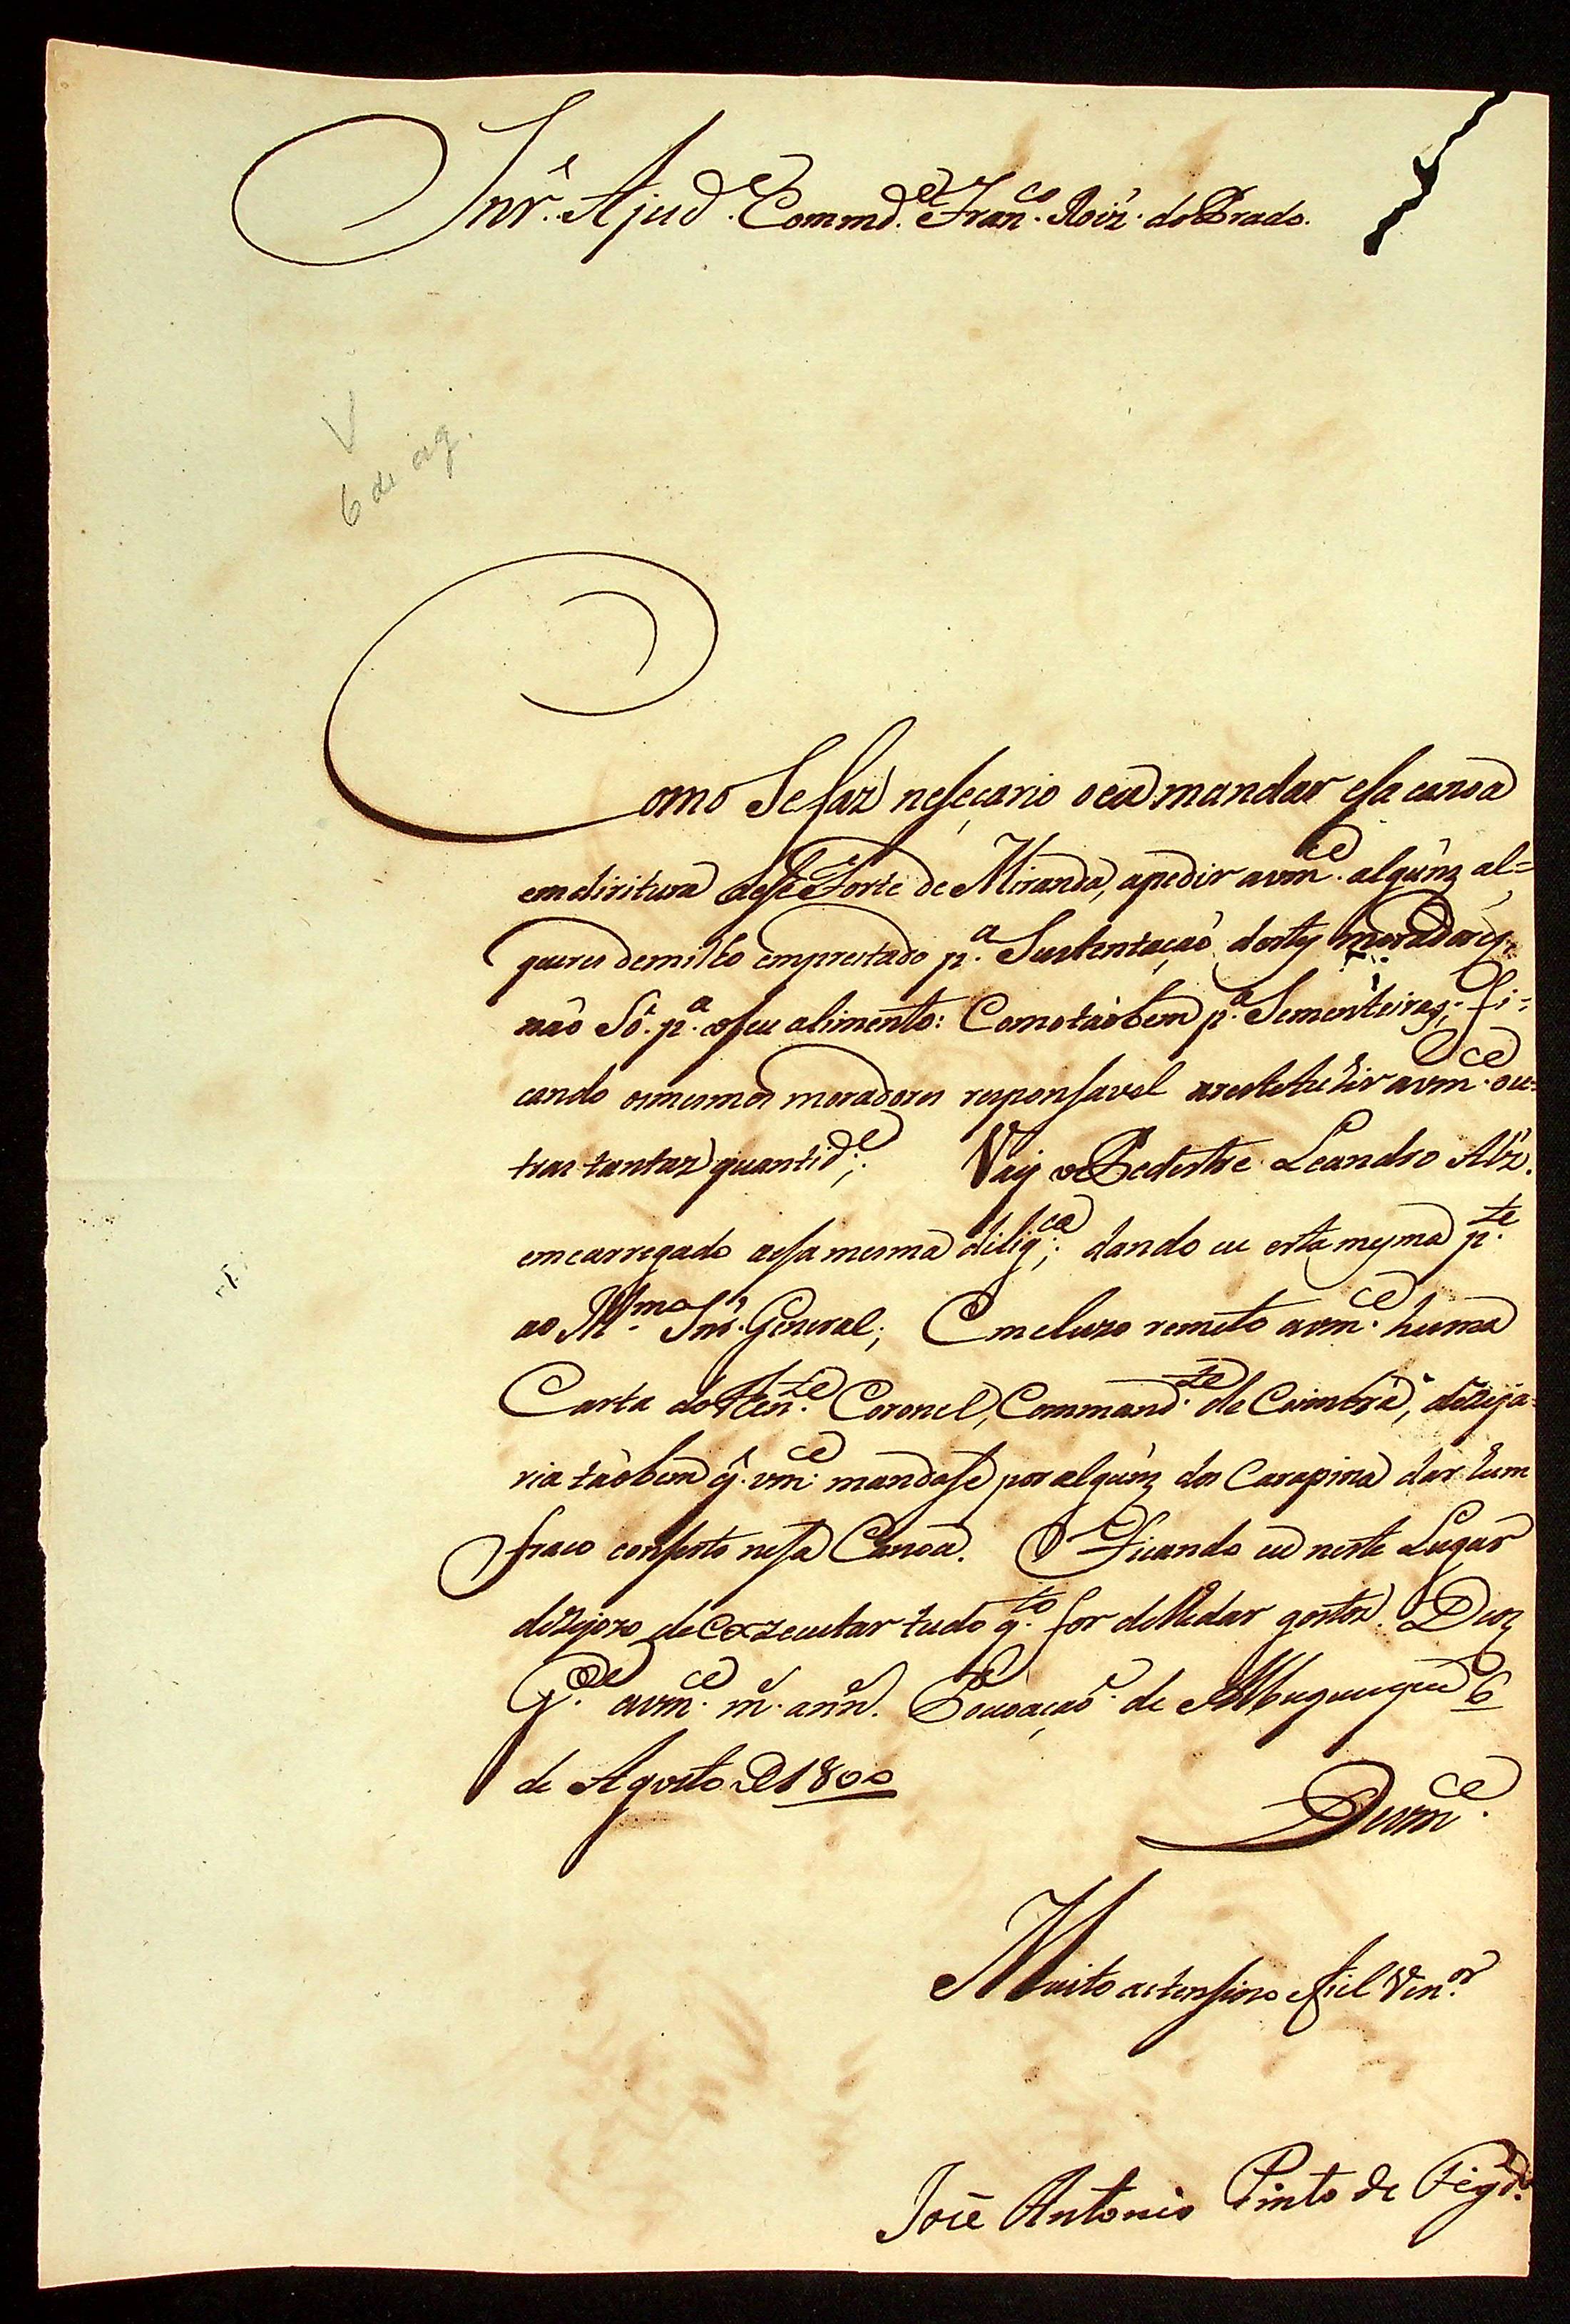 Snr.ᵉ Ajud.ᵉ Commd.ᵉ Fran.ᶜᵒ Roiz'. do Prado.
V
6 de ag.
Como Se faz nesecario o eu mandar esa canoa
em diritura desse Forte de Miranda, apedir avm.ᶜᵉ algúnz al=
queres demilho emprestado p.ᵃ Sustentação desty moradory,
não Só p.ᵃ oseu alimento: Como taõbem p.ᵃ Sementeiras; fi=
cando osmesmos moradores responsavel arestetuhir avm.ᶜᵉ ou=
tras tantaz quantid.ᵉ; Vay o Pedestre Leandro Alz'.
emcarregado aesa mesma dilig.ᶜᵃ; dando eu esta meyma p.ᵗᵉ
ao Ill.ᵐᵒ Snr. General; Emcluzo remeto avm.ᶜᵉ huma
Carta do Ten.ᵗᵉ Coronel, Command.ᵗᵉ de Coimbra, dezeja=
ria taõbem q̃. vm.ᶜᵉ mandase por algúnz dos Carapina dar hum
fraco conserto nesa Canoa. Ficando eu neste Lugar
dezejozo de exzecutar tudo q.ᵗᵒ for de lhe dar gostoz. Deoz
G.ᵈᵉ avm.ᶜᵉ m.ˢ ann.ˢ Povoação de Albuquerque 6
de Agosto D 1800
Devm.ᶜᵉ
Muito atensiozo efiel Ven.ᵒʳ
Joze Antonio Pinto de Figd.ᵒ